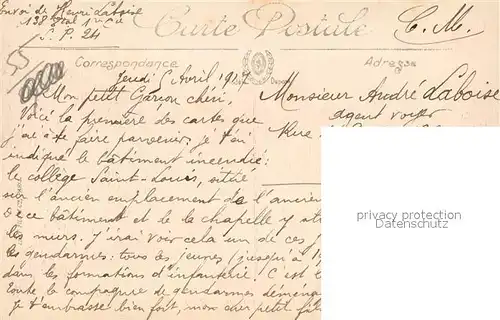 Envoi de Henri Laboise
138e 1re Cie
S. P. 24
Carte Postale
C. M.
55
Correspondance
Adresse
Jeudi 5 Avril 1917
Mon petit Garçon chéri,
Monsieur André Laboise
Voici la première des cartes que
agent voyer
j'ai à te faire parvenir. je t'ai
Rue
indiqué le bâtiment incendié:
le collège Saint-Louis, situé
sur l'ancien emplacement de l'ancien
bâtiment et de la chapelle y
les murs. J'irai voir cela un de ces
les gendarmes. tous les jeunes (jusqu'à
dans les formations d'infanterie. C'est
toute la compagnie de gendarmes
Je t'embrasse bien fort, mon cher petit
privacy protection
Datenschutz